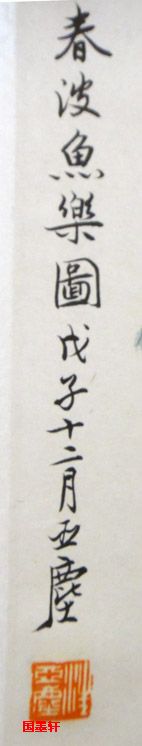 春波魚樂圖戊子十二月亚塵
汪亞塵
国墨轩